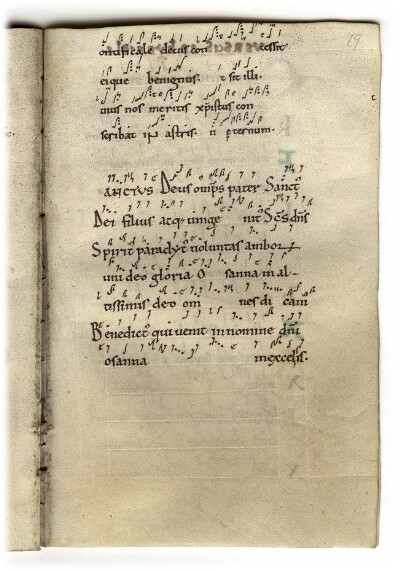 29
ontificale decus con cessit
eique benignus. t sit illi.
uiuus nos meritis xp̄istus con
scribat in astris. in ęternum.
SANCTUS Deus omīps pater Sanct
Dei filius atq; unige nit Sc̄s dn̄s
Spirit paraclyt uoluntas amborū
uni deo gloria O sanna in al-
tissimis deo om nes di cant
Benedict qui uenit in nomine dn̄i
osanna inexcelsis.